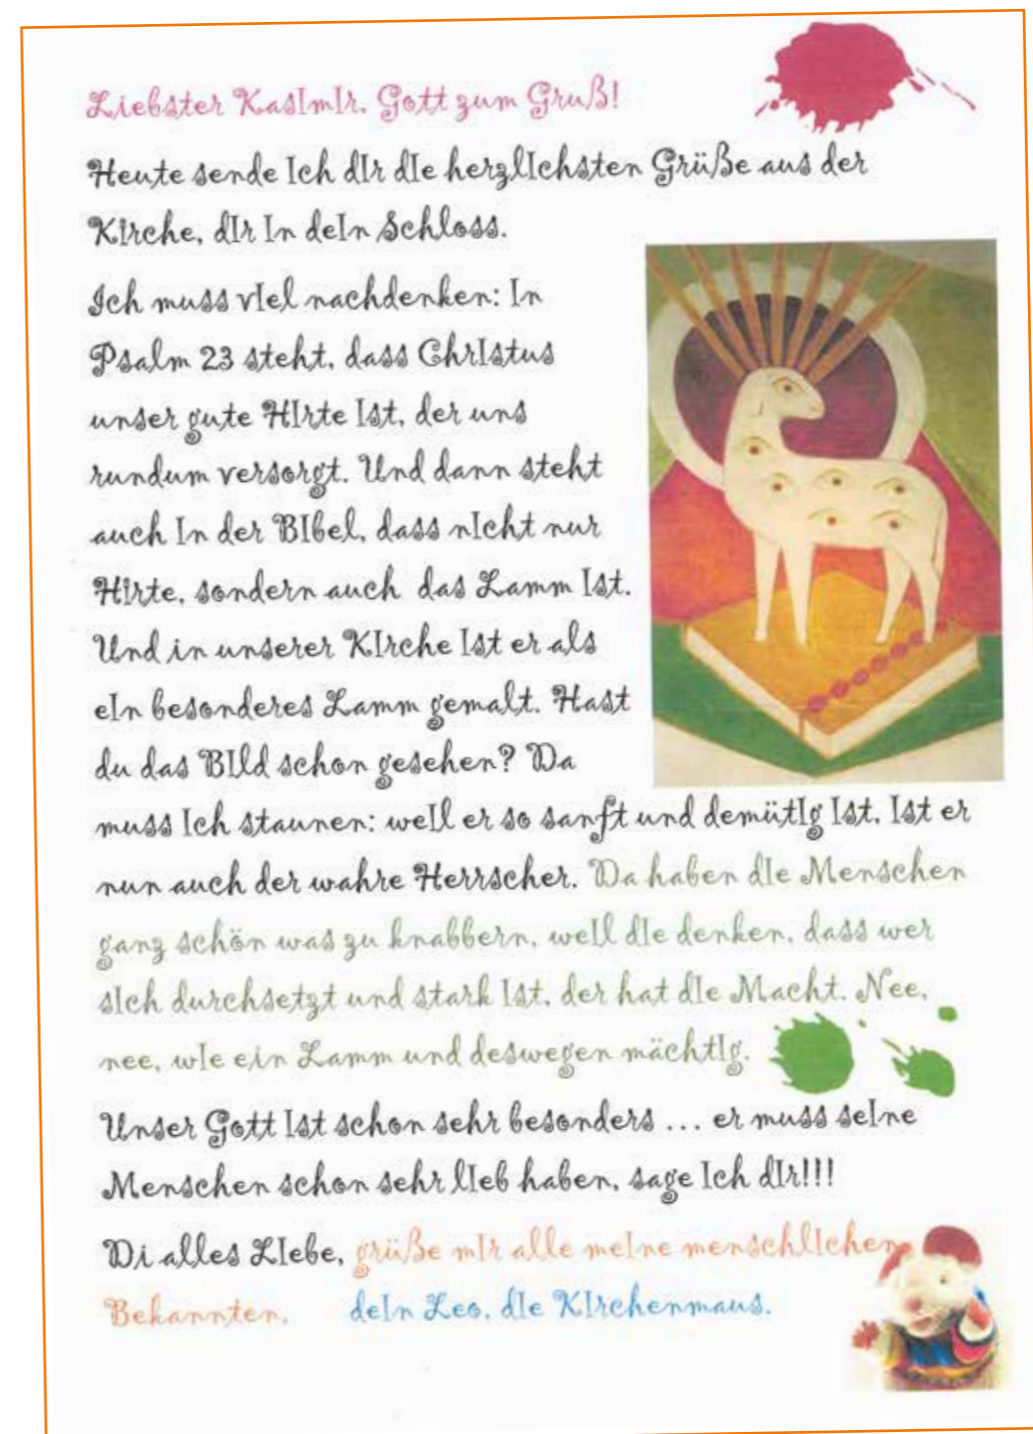 Liebster KasImIr. Gott zum Gruß!
Heute sende Ich dIr dIe herzlIchsten Grüße aus der
KIrche, dIr In deIn Schloss.
Ich muss vIel nachdenken: In
Psalm 23 steht, dass ChrIstus
unser gute HIrte Ist, der uns
rundum versorgt. Und dann steht
auch In der BIbel, dass nIcht nur
HIrte, sondern auch das Lamm Ist.
Und in unserer KIrche Ist er als
eIn besonderes Lamm gemalt. Hast
du das BIld schon gesehen? Da
muss Ich staunen: weIl er so sanft und demütIg Ist, Ist er
nun auch der wahre Herrscher. Da haben dIe Menschen
ganz schön was zu knabbern, weIl dIe denken, dass wer
sIch durchsetzt und stark Ist, der hat dIe Macht. Nee,
nee, wIe ein Lamm und deswegen mächtIg.
Unser Gott Ist schon sehr besonders ... er muss seIne
Menschen schon sehr lIeb haben, sage Ich dIr!!!
Di alles LIebe, grüße mIr alle meIne menschlIchen
Bekannten, deIn Leo, dIe KIrchenmaus.